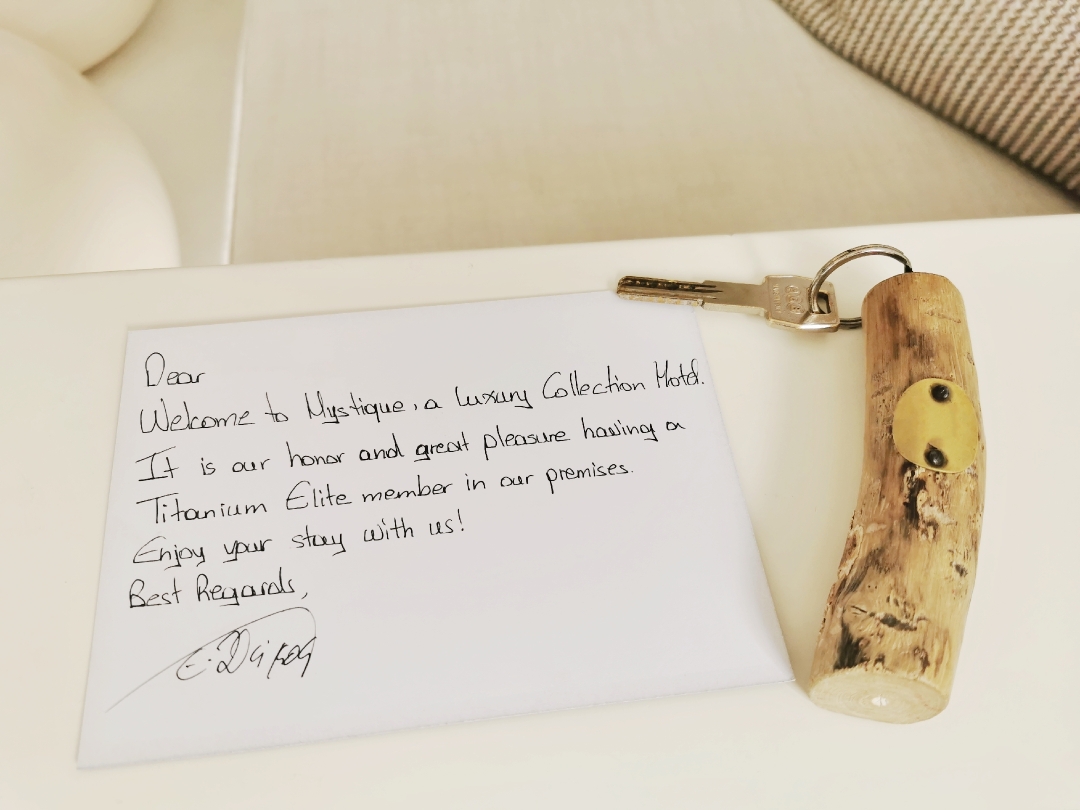 Dear
Welcome to Mystique, a Luxury Collection Hotel.
It is our honor and great pleasure having a
Titanium Elite member in our premises.
Enjoy your stay with us!
Best Regards,